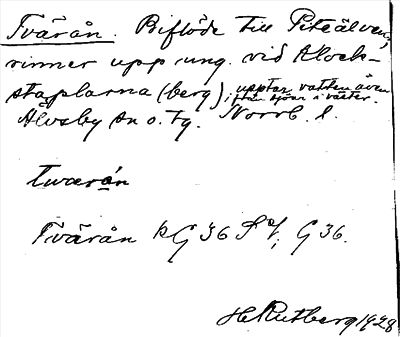 Tvärån. Biflöde till Piteälven,
rinner upp ung. vid Klock-
staplarna (berg), upptar vatten även
ifrån sjöar i väster.
Älvsby sn o. tg. Norrb. l.
twærán
Tvärån kG 36 S V, G 36.
H. Rutberg 1928